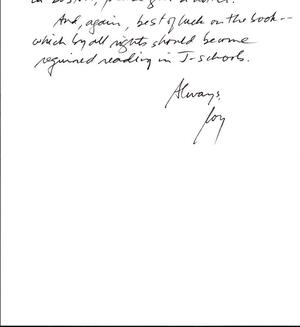 And, again, best of luck on the book--
which by all rights should become
required reading in J-schools.
Always,